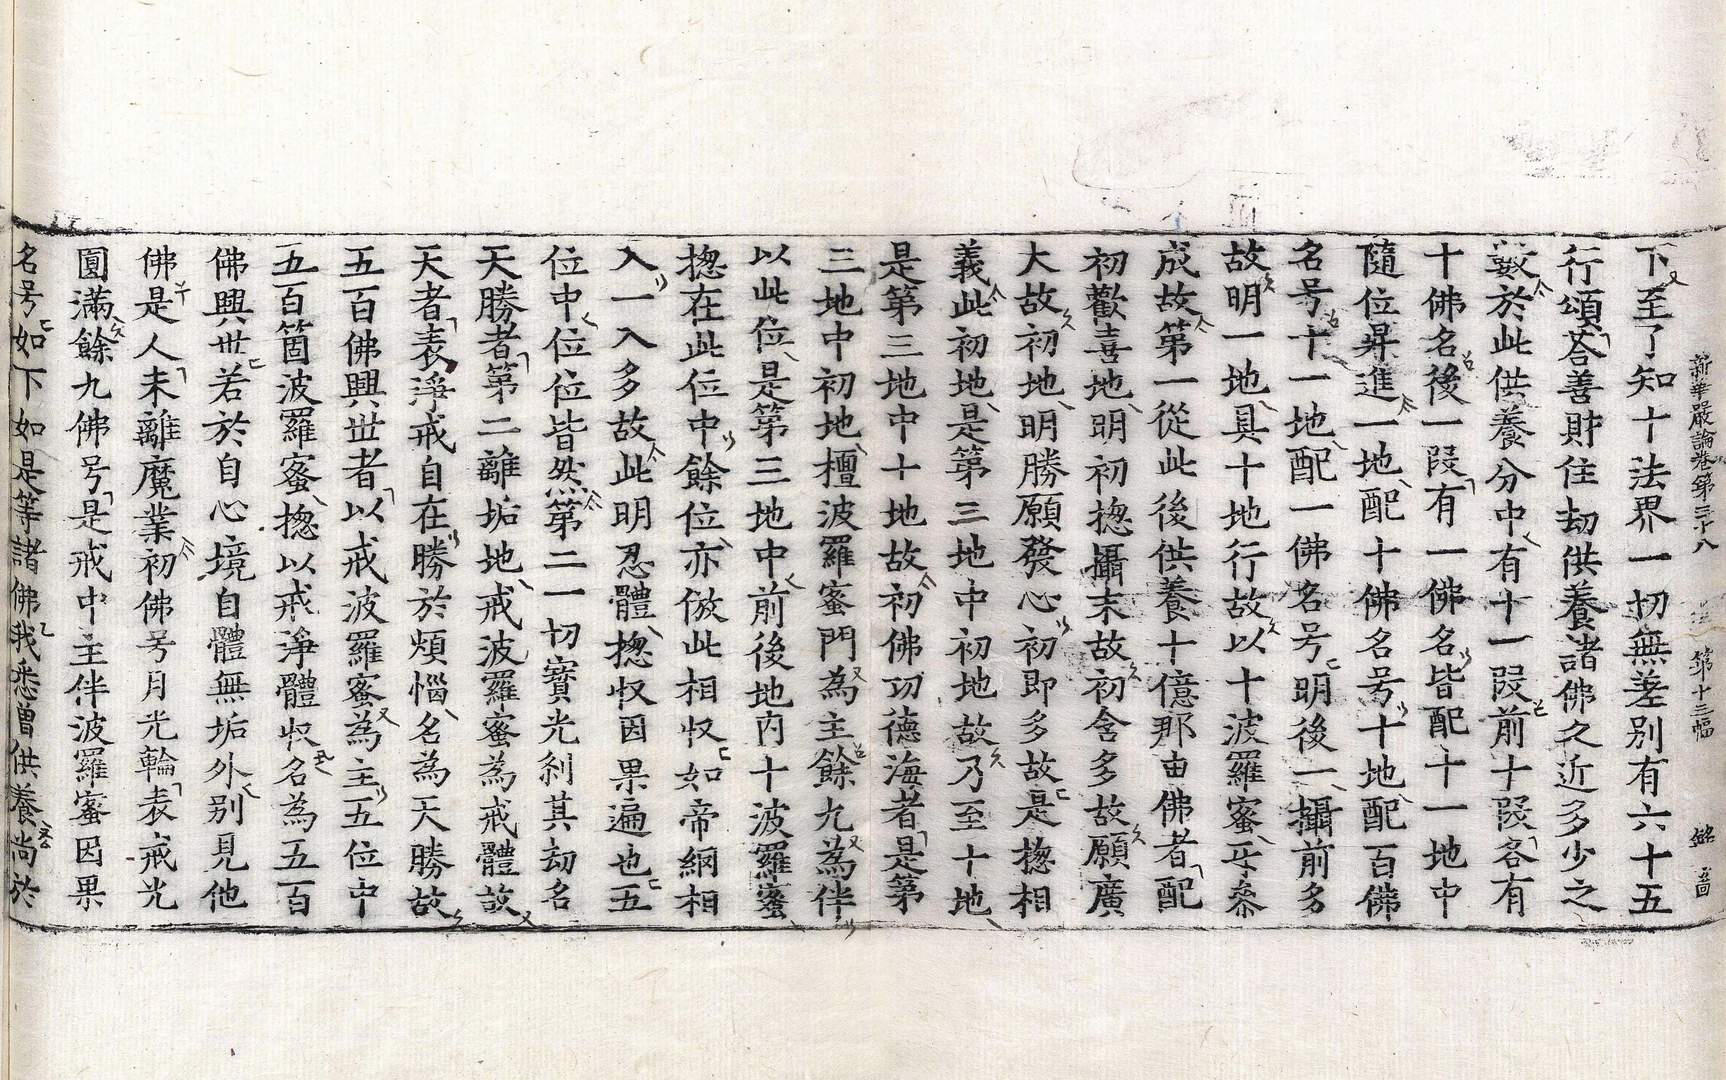 新華嚴論卷第三十八　第十三幅
下至了知十法界一切無差别有六十五
行頌荅善財住劫供養諸佛久近多少之
數於此供養分中有十一段前十段各有
十佛名後一段有一佛名皆配十一地中
隨位昇進一地配十佛名号十地配百佛
名号十一地配一佛名号明後一攝前多
故明一地具十地行故以十波羅蜜乎叅
成故第一從此後供養十億那由佛者配
初歡喜地明初揔攝末故初含多故願廣
大故初地明勝願發心初即多故是揔相
義此初地是第三地中初地故乃至十地
是第三地中十地故初佛功德海者是第
三地中初地檀波羅蜜門為主餘九為伴
以此位是第三地中前後地内十波羅蜜
揔在此位中餘位亦倣此相収如帝網相
入一入多故此明忍體揔収因果遍也五
位中位位皆然第二一切寳光刹其劫名
天勝者第二離垢地戒波羅蜜為戒體故
天者表淨戒自在勝於煩惱名為天勝故
五百佛興世者以戒波羅蜜為主五位中
五百箇波羅蜜揔以戒淨體収名為五百
佛興世若於自心境自體無垢外别見他
佛是人未離魔業初佛号月光輪表戒光
圓滿餘九佛号是戒中主伴波羅蜜因果
名号如下如是等諸佛我悉曽供養尚於